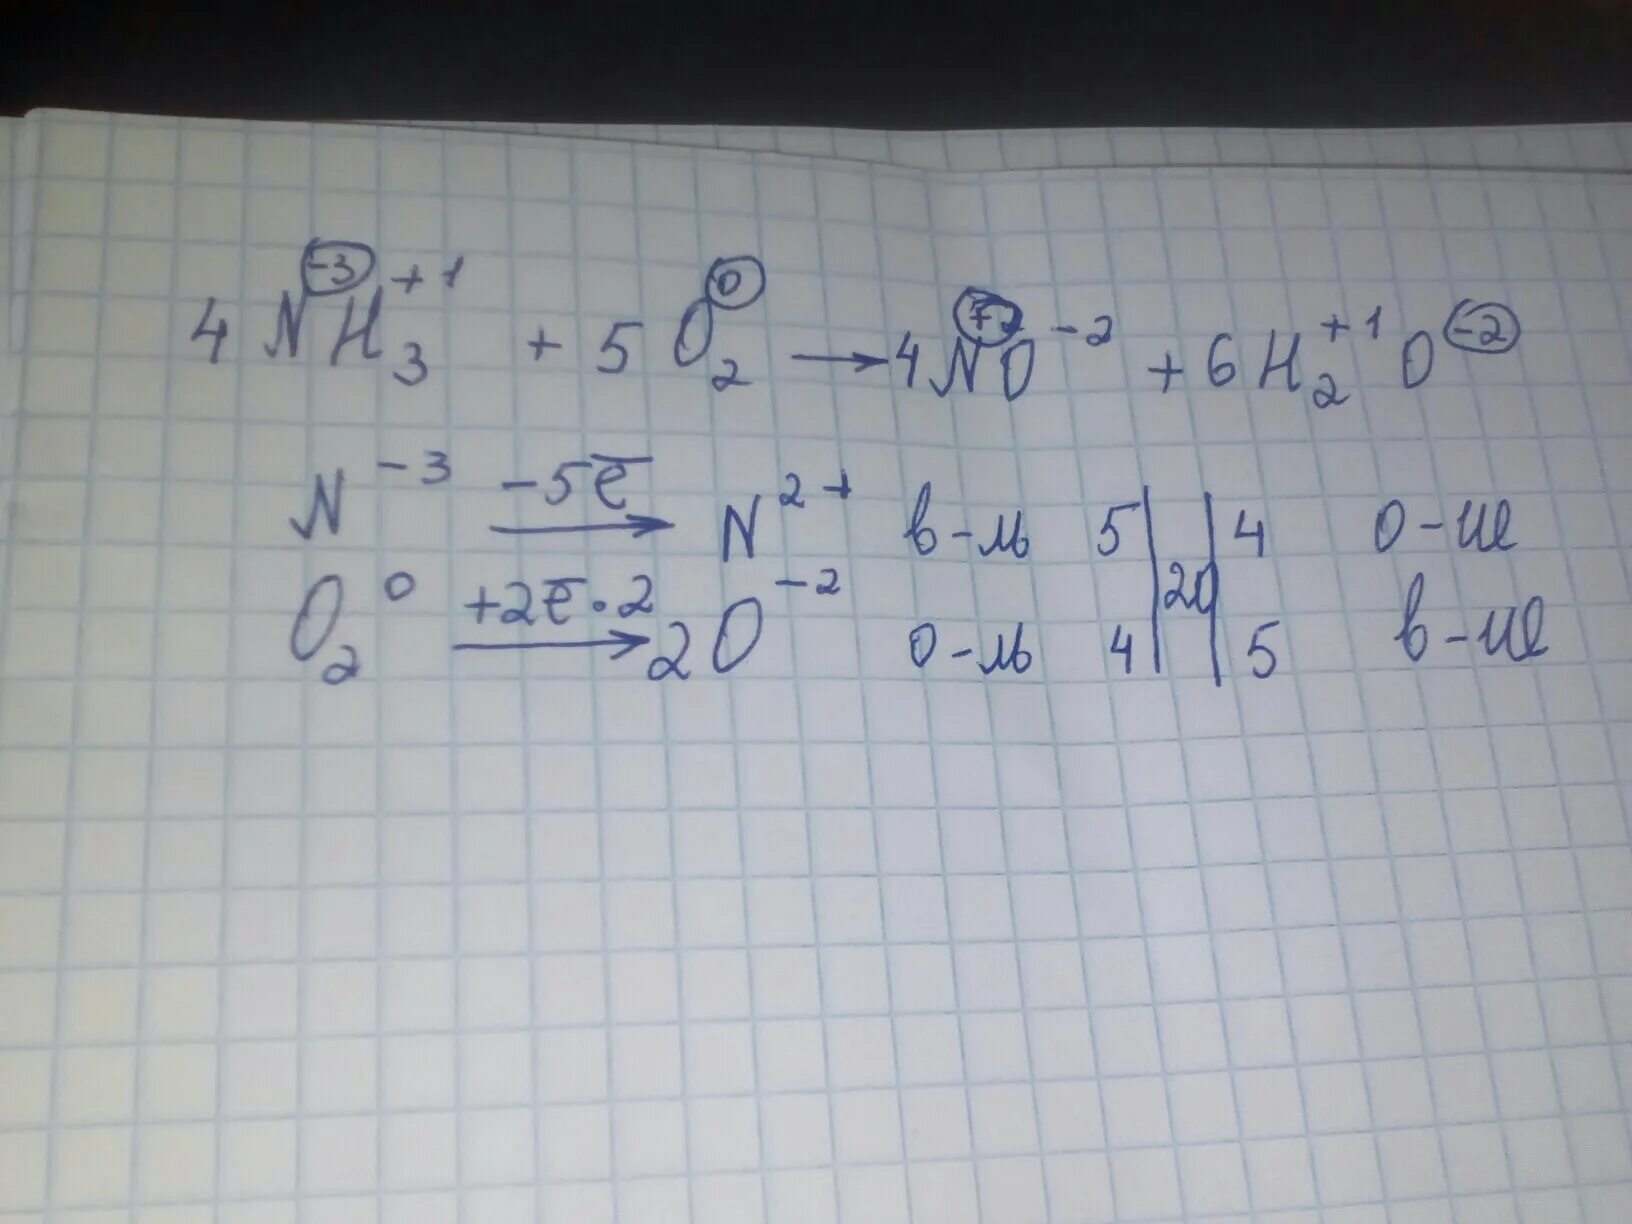 4 N⁻³H₃⁺¹ + 5 O₂⁰ → 4N⁺²O⁻² + 6H₂⁺¹O⁻²
N⁻³ −5e̅ → N²⁺ в-ль 5 | 20 | 4 о-ие
O₂⁰ +2e̅·2 → 2O⁻² о-ль 4 | | 5 в-ие